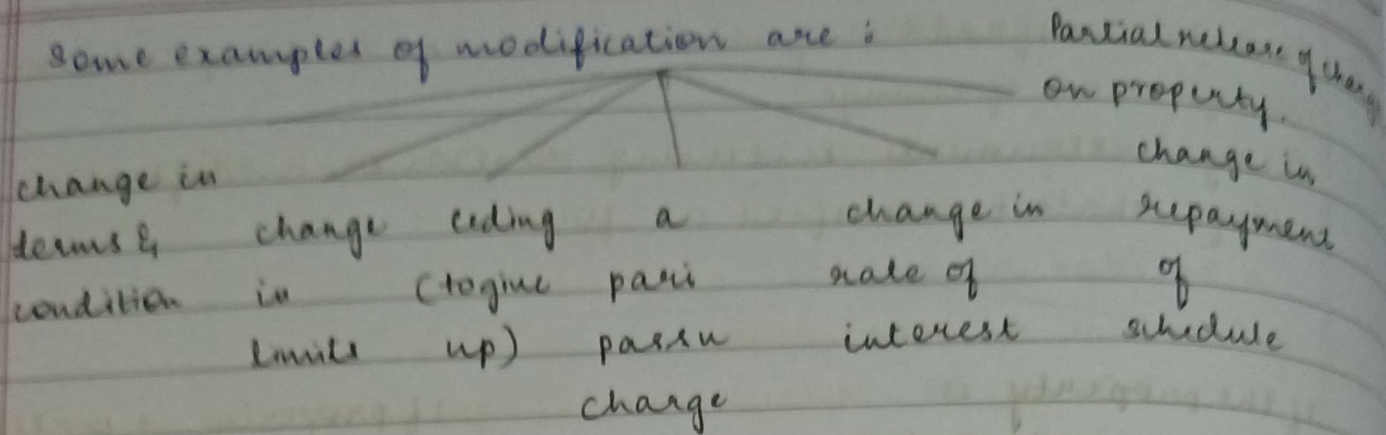 Some examples of modification are :
Partial release of charge
on property.
change in
terms &
condition
change
in
limits
ceding
(to give
up)
a
pari
passu
charge
change in
rate of
interest
change in
repayment
of
schedule